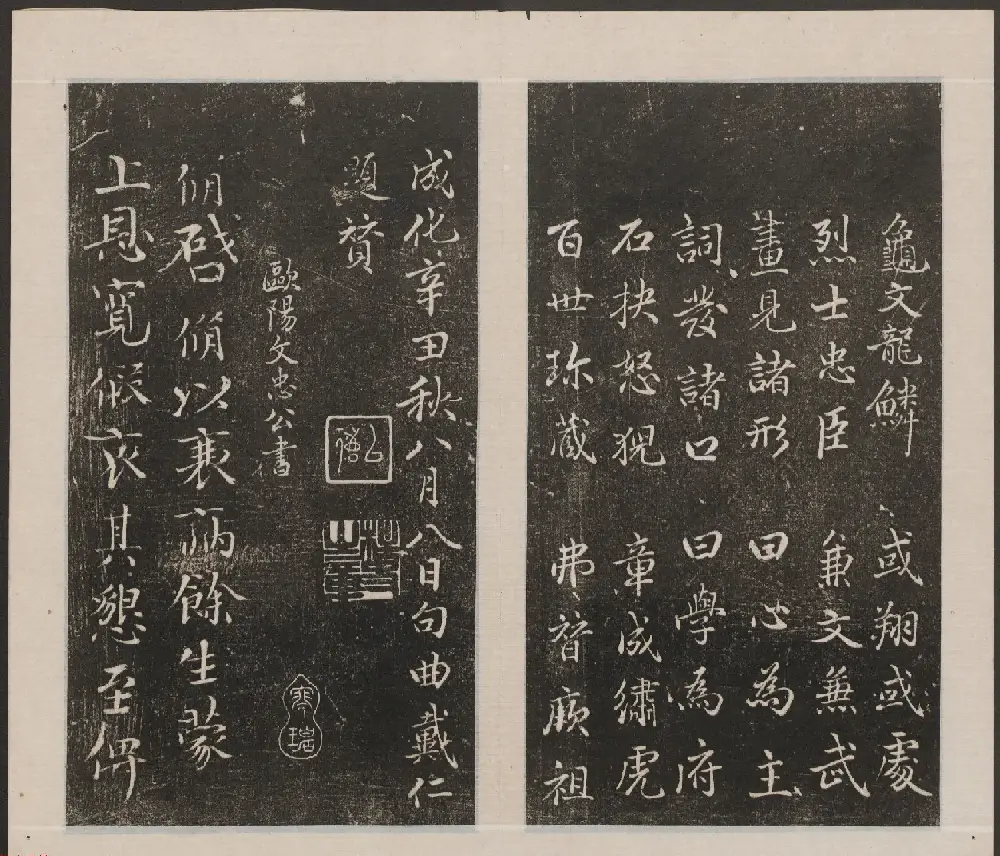 龜文龍鱗 或翔或處
烈士忠臣 兼文兼武
畫見諸形 曰心為主
詞發諸口 曰學為府
石抉怒猊 章成繡虎
百世珎藏 弗替厥祖
成化辛丑秋八月八日句曲戴仁
題贊
歐陽文忠公書
脩啓脩以衰病餘生蒙
上恩寬假哀其懇至俾